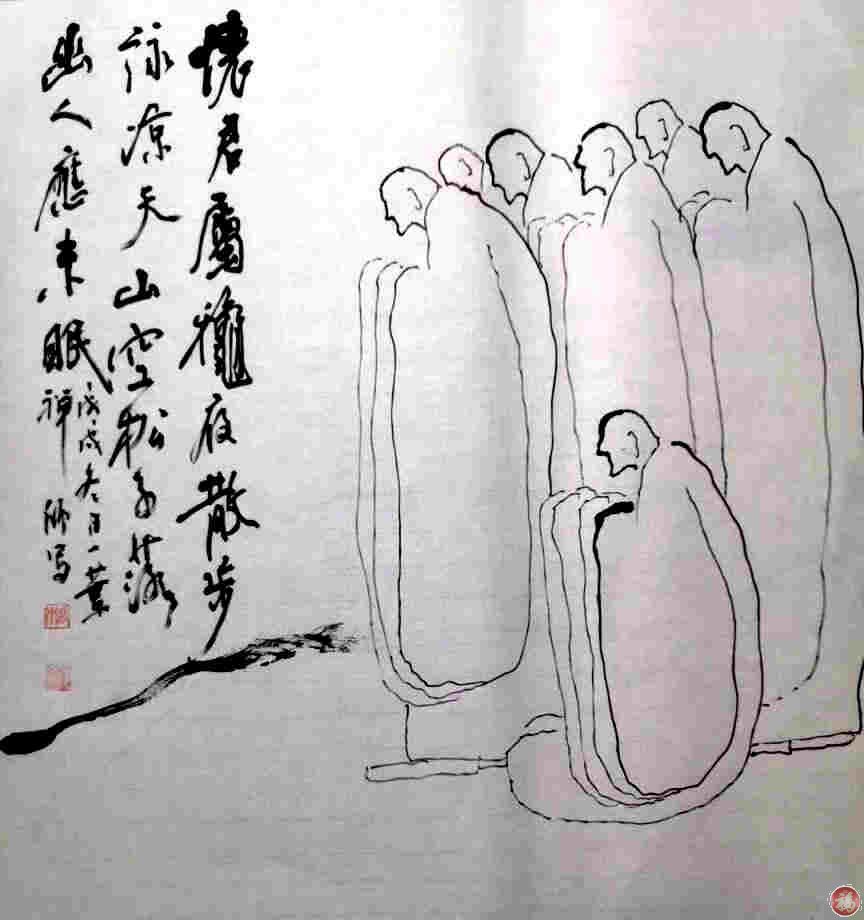 懷君屬龝夜散步
詠凉天山空松子落
幽人應未眠
戊戌冬月一葉
禪師写
福